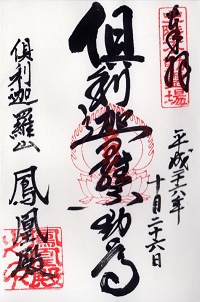 奉拝
平成二十六年
十月二十六日
倶利迦羅不動尊
倶利迦羅山
鳳凰殿